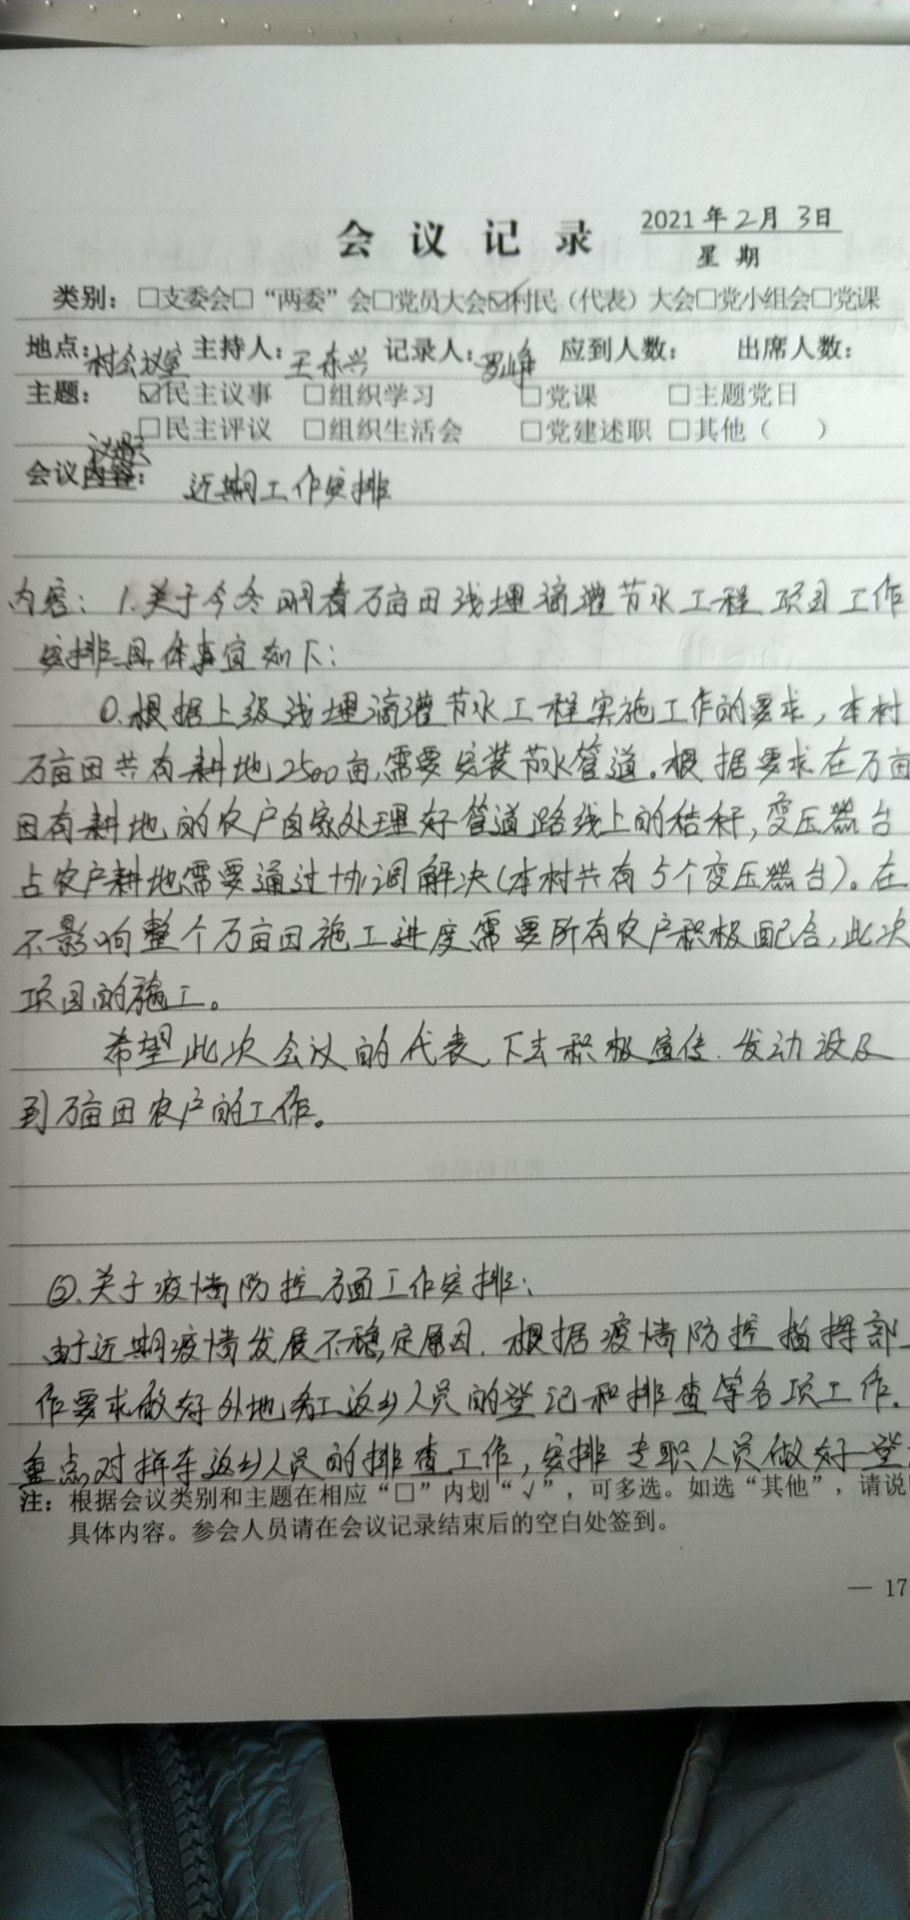 会议记录
2021年2月3日
星期
类别：□支委会□“两委”会□党员大会☑村民（代表）大会□党小组会□党课
地点：村会议室 主持人：王东兴 记录人：罗峰 应到人数： 出席人数：
主题：☑民主议事 □组织学习 □党课 □主题党日
□民主评议 □组织生活会 □党建述职 □其他（ ）
议题
会议内容： 近期工作安排
内容：1.关于今冬明春万亩田浅埋滴灌节水工程项目工作
安排具体事宜如下：
①.根据上级浅埋滴灌节水工程实施工作的要求，本村
万亩田共有耕地2500亩，需要安装节水管道。根据要求在万亩
田有耕地的农户自家处理好管道路线上的秸秆，变压器台
占农户耕地需要通过协调解决（本村共有5个变压器台）。在
不影响整个万亩田施工进度需要所有农户积极配合，此次
项目的施工。
希望此次会议的代表，下去积极宣传．发动设及
到万亩田农户的工作。
②.关于疫情防控方面工作安排：
由于近期疫情发展不稳定原因．根据疫情防控指挥部
作要求做好外地务工返乡人员的登记和排查等各项工作．
重点对拼车返乡人员的排查工作，安排专职人员做好登
注：根据会议类别和主题在相应“□”内划“√”，可多选。如选“其他”，请说
具体内容。参会人员请在会议记录结束后的空白处签到。
— 17